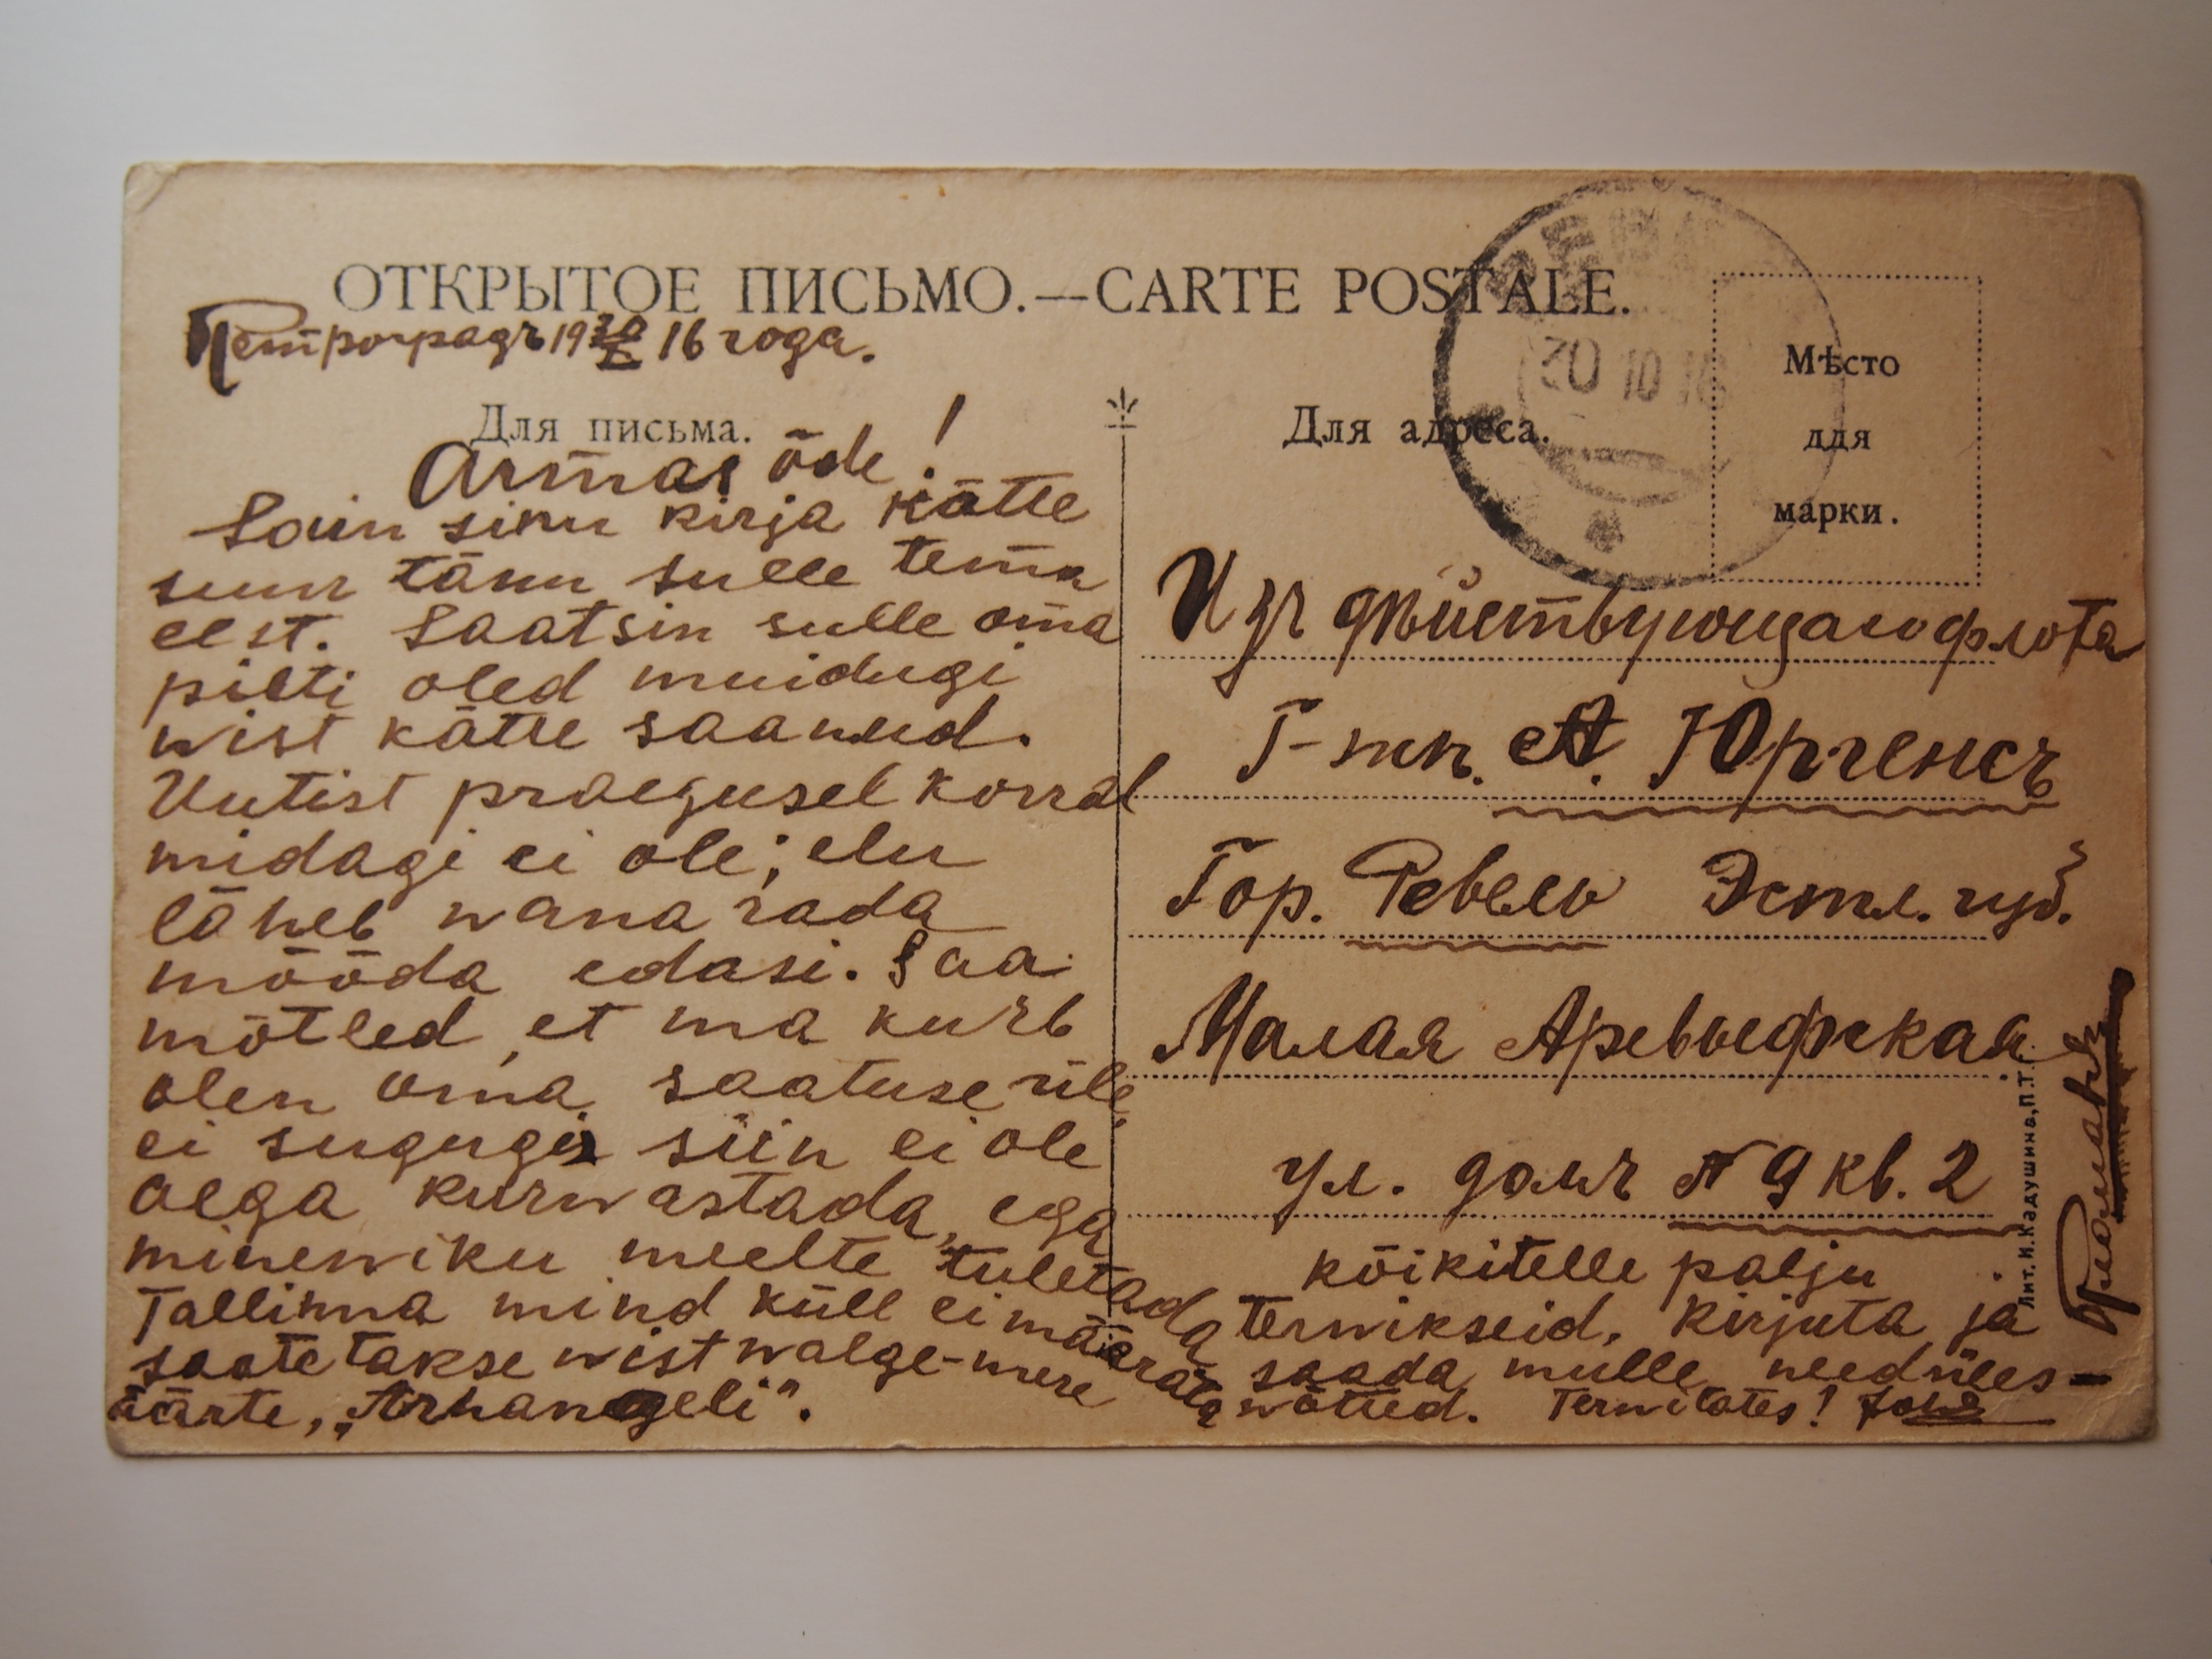 ОТКРЫТОЕ ПИСЬМО.—CARTE POSTALE.
Петроградъ 19 20/X 16 года.
30 10 16
Мѣсто
для
марки.
Для письма.
Для адреса.
Armas õde!
Sain sinu kirja kätte
suur tänu sulle tema
eest. Saatsin sulle oma
pilti oled muidugi
wist kätte saanud.
Uutist praegusel korral
midagi ei ole; elu
läheb wana rada
mööda edasi. Saa
mõtled, et ma kurb
olen oma saatuse üle,
ei sugugi siin ei ole
aega kurwastada, ega
minewiku meelte tuletada
Tallinna mind küll ei määrata
saatetakse wist walge-mere
äärte, „Arhangeli".
Изъ дѣйствующаго флота
Г-жѣ. А. Юргенсъ
Гор. Ревель Эстл. губ.
Малая
ул. домъ № 9 кв. 2
kõikitelle palju
terwikseid. Kirjuta ja
saada mulle needüles-
wõtted. Terwitates!
Лит. И. Кадушина, П.Т.